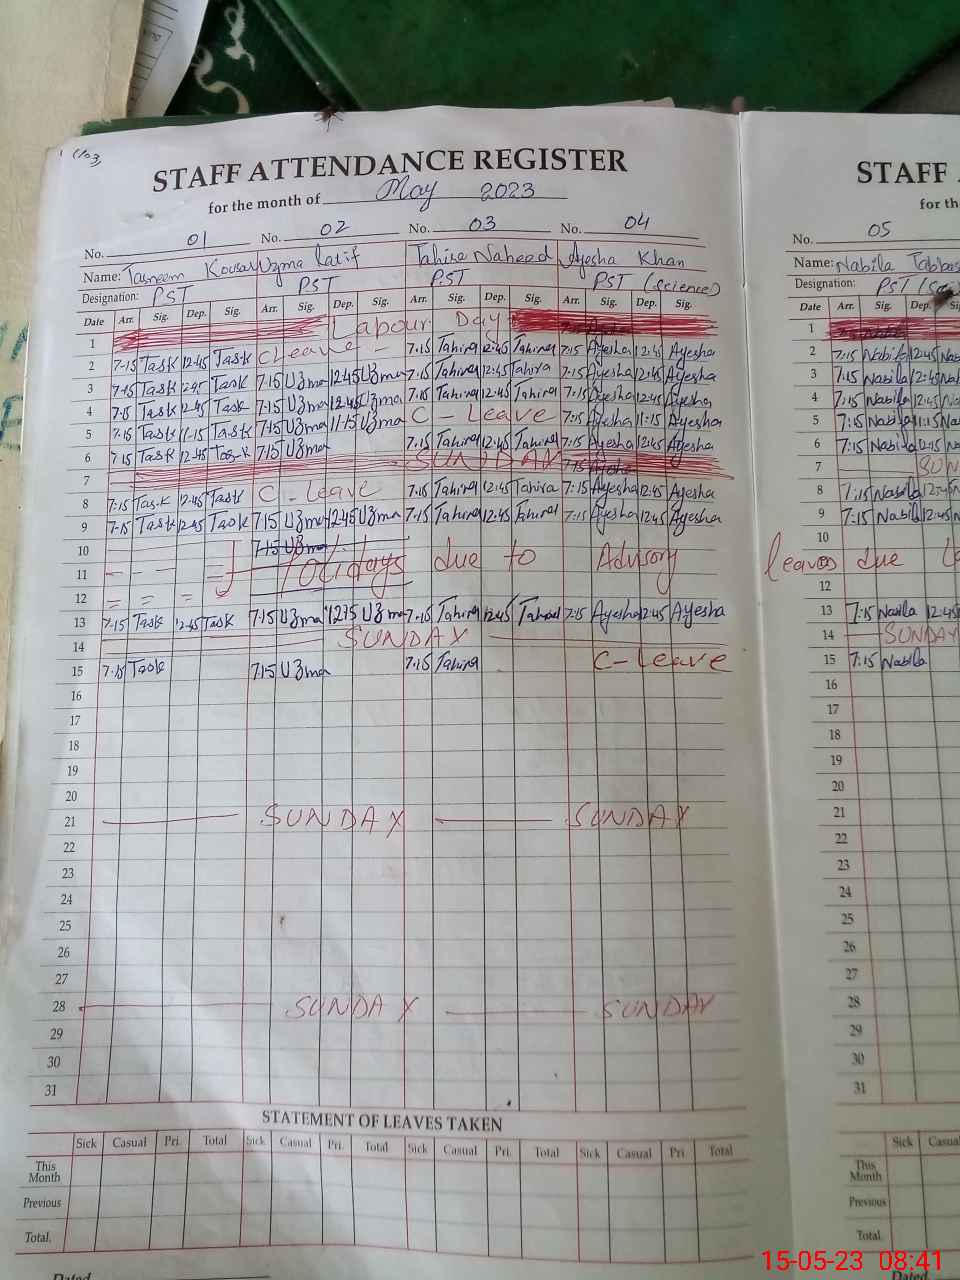 STAFF ATTENDANCE REGISTER
for the month of May 2023
No. 01 No. 02 No. 03 No. 04
Name: Tasneem Kousar Uzma Latif Tahira Naheed Ayesha Khan
Designation: PST PST PST PST (Science)
Date Arr. Sig. Dep. Sig. Arr. Sig. Dep. Sig. Arr. Sig. Dep. Sig. Arr. Sig. Dep. Sig.
1 Labour Day
2 7-15 Task 12:45 Task C Leave - 7:15 Tahira 12:45 Tahira 7:15 Ayesha 12:45 Ayesha
3 7-15 Task 12:45 Task 7:15 Uzma 12:45 Uzma 7:15 Tahira 12:45 Tahira 7:15 Ayesha 12:45 Ayesha
4 7-15 Task 12:45 Task 7:15 Uzma 12:45 Uzma 7:15 Tahira 12:45 Tahira 7:15 Ayesha 12:45 Ayesha
5 7-15 Task 11-15 Task 7:15 Uzma 11:15 Uzma C - Leave 7:15 Ayesha 11:15 Ayesha
6 7-15 Task 12:45 Task 7:15 Uzma 7:15 Tahira 12:45 Tahira 7:15 Ayesha 12:45 Ayesha
7 SUNDAY
8 7-15 Task 12:45 Task C - Leave 7:15 Tahira 12:45 Tahira 7:15 Ayesha 12:45 Ayesha
9 7-15 Task 12:45 Task 7:15 Uzma 12:45 Uzma 7:15 Tahira 12:45 Tahira 7:15 Ayesha 12:45 Ayesha
10 7:15 Uzma
11 Holidays due to Advisory
12
13 7-15 Task 12:45 Task 7:15 Uzma 12:15 Uzma 7:15 Tahira 12:45 7:15 Ayesha 12:45 Ayesha
14 SUNDAY
15 7:15 Task 7:15 Uzma 7:15 Tahira C - Leave
16
17
18
19
20
21 SUNDAY SUNDAY
22
23
24
25
26
27
28 SUNDAY SUNDAY
29
30
31
STATEMENT OF LEAVES TAKEN
Sick Casual Pri. Total Sick Casual Pri. Total Sick Casual Pri. Total Sick Casual Pri. Total
This Month
Previous
Total.
Dated
STAFF
for th
No. 05
Name: Nabila
Designation: PST
Date Arr. Sig. Dep.
1
2 7:15 Nabila 12:45
3 7:15 Nabila 12:45
4 7:15 Nabila 12:45
5 7:15 Nabila 11:15
6 7:15 Nabila
7 SUN
8 7:15 Nabila
9 7:15 Nabila 12:45
10
leaves due
12
13 7:15 Nabila 12:45
14 SUNDAY
15 7:15 Nabila
16
17
18
19
20
21
22
23
24
25
26
27
28
29
30
31
Sick Casual
This Month
Previous
Total
Dated
15-05-23 08:41